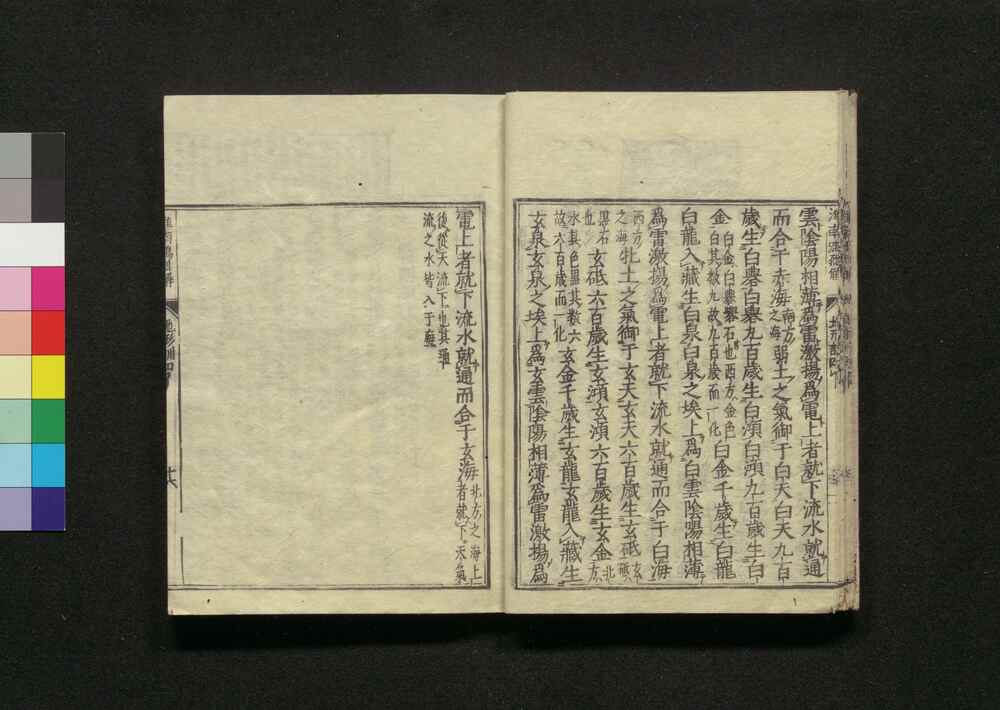 雲陰陽相薄為雷激揚為電上者就下流水就通
而合于赤海南方之海弱土之氣御于白天白天九百
歲生白礜白礜九百歲生白澒白澒九百歲生白
金白金白礜礜石也西方金色白其數九故九百歲而一化白金千歲生白龍
白龍入藏生白泉白泉之埃上為白雲陰陽相薄
為雷激揚為電上者就下流水就通而合于白海
西方之海牝土之氣御于玄天玄天六百歲生玄砥玄砥
黑石也玄砥六百歲生玄澒玄澒六百歲生玄金北方
水其色黑其數六故六百歲而一化玄金千歲生玄龍玄龍入藏生
玄泉玄泉之埃上為玄雲陰陽相薄為雷激揚為
電上者就下流水就通而合于玄海北方之海上者就下天氣
後從天流下也其通流之水皆入于